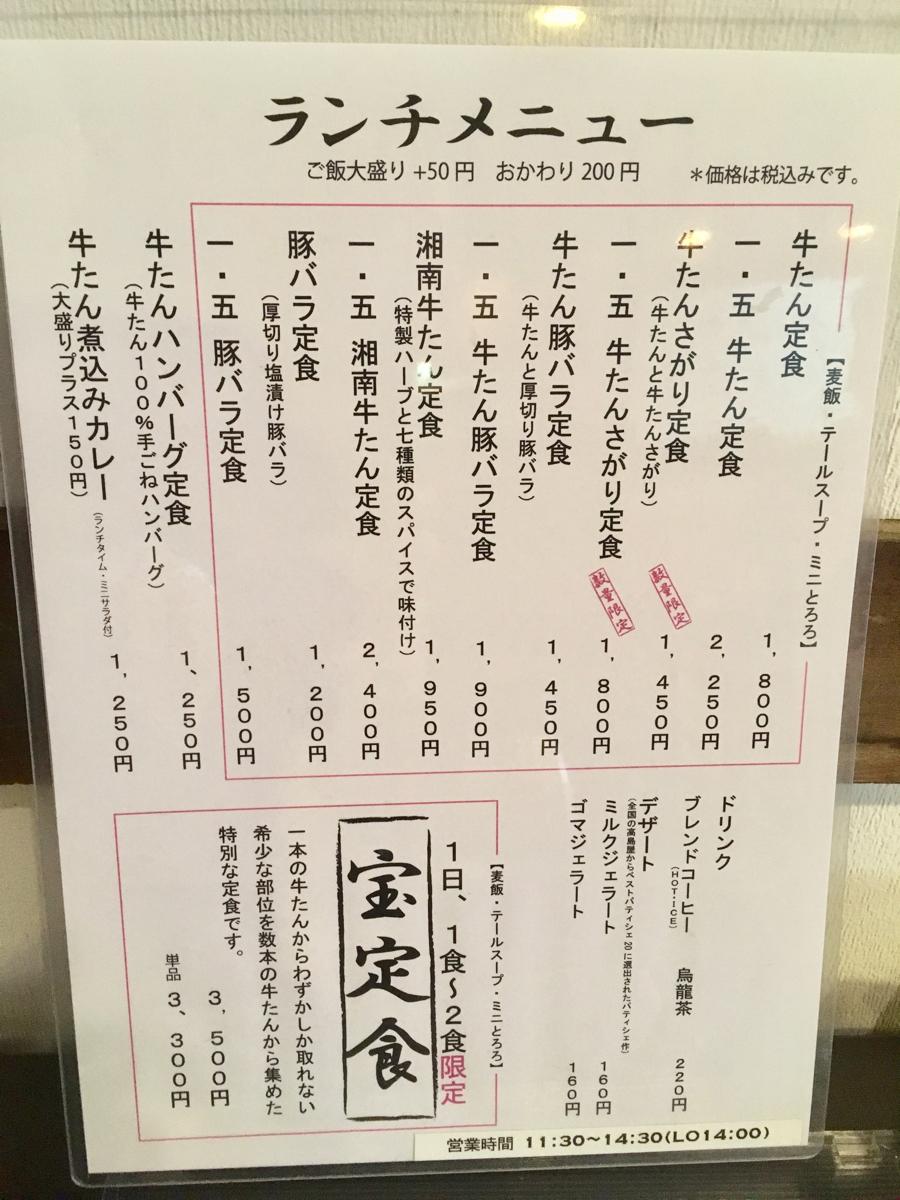 ランチメニュー
ご飯大盛り+50円 おかわり200円
*価格は税込みです。
【麦飯・テールスープ・ミニとろろ】
牛たん定食 1,800円
一・五 牛たん定食 2,250円
牛たんさがり定食 数量限定 1,450円
(牛たんと牛たんさがり)
一・五 牛たんさがり定食 数量限定 1,800円
牛たん豚バラ定食 1,450円
(牛たんと厚切り豚バラ)
一・五 牛たん豚バラ定食 1,900円
湘南牛たん定食 1,950円
(特製ハーブと七種類のスパイスで味付け)
一・五 湘南牛たん定食 2,400円
豚バラ定食 1,200円
(厚切り塩漬け豚バラ)
一・五 豚バラ定食 1,500円
牛たんハンバーグ定食 1、250円
(牛たん100%手ごねハンバーグ)
牛たん煮込みカレー (ランチタイム・ミニサラダ付) 1,250円
(大盛りプラス150円)
ドリンク
ブレンドコーヒー 烏龍茶 220円
(HOT・ICE)
デザート
(全国の高島屋からベストパティシェ20に選出されたパティシェ作)
ミルクジェラート 160円
ゴマジェラート 160円
【麦飯・テールスープ・ミニとろろ】
1日、1食~2食限定
宝定食
一本の牛たんからわずかしか取れない
希少な部位を数本の牛たんから集めた
特別な定食です。
3,500円
単品 3、300円
営業時間 11:30~14:30(LO14:00)